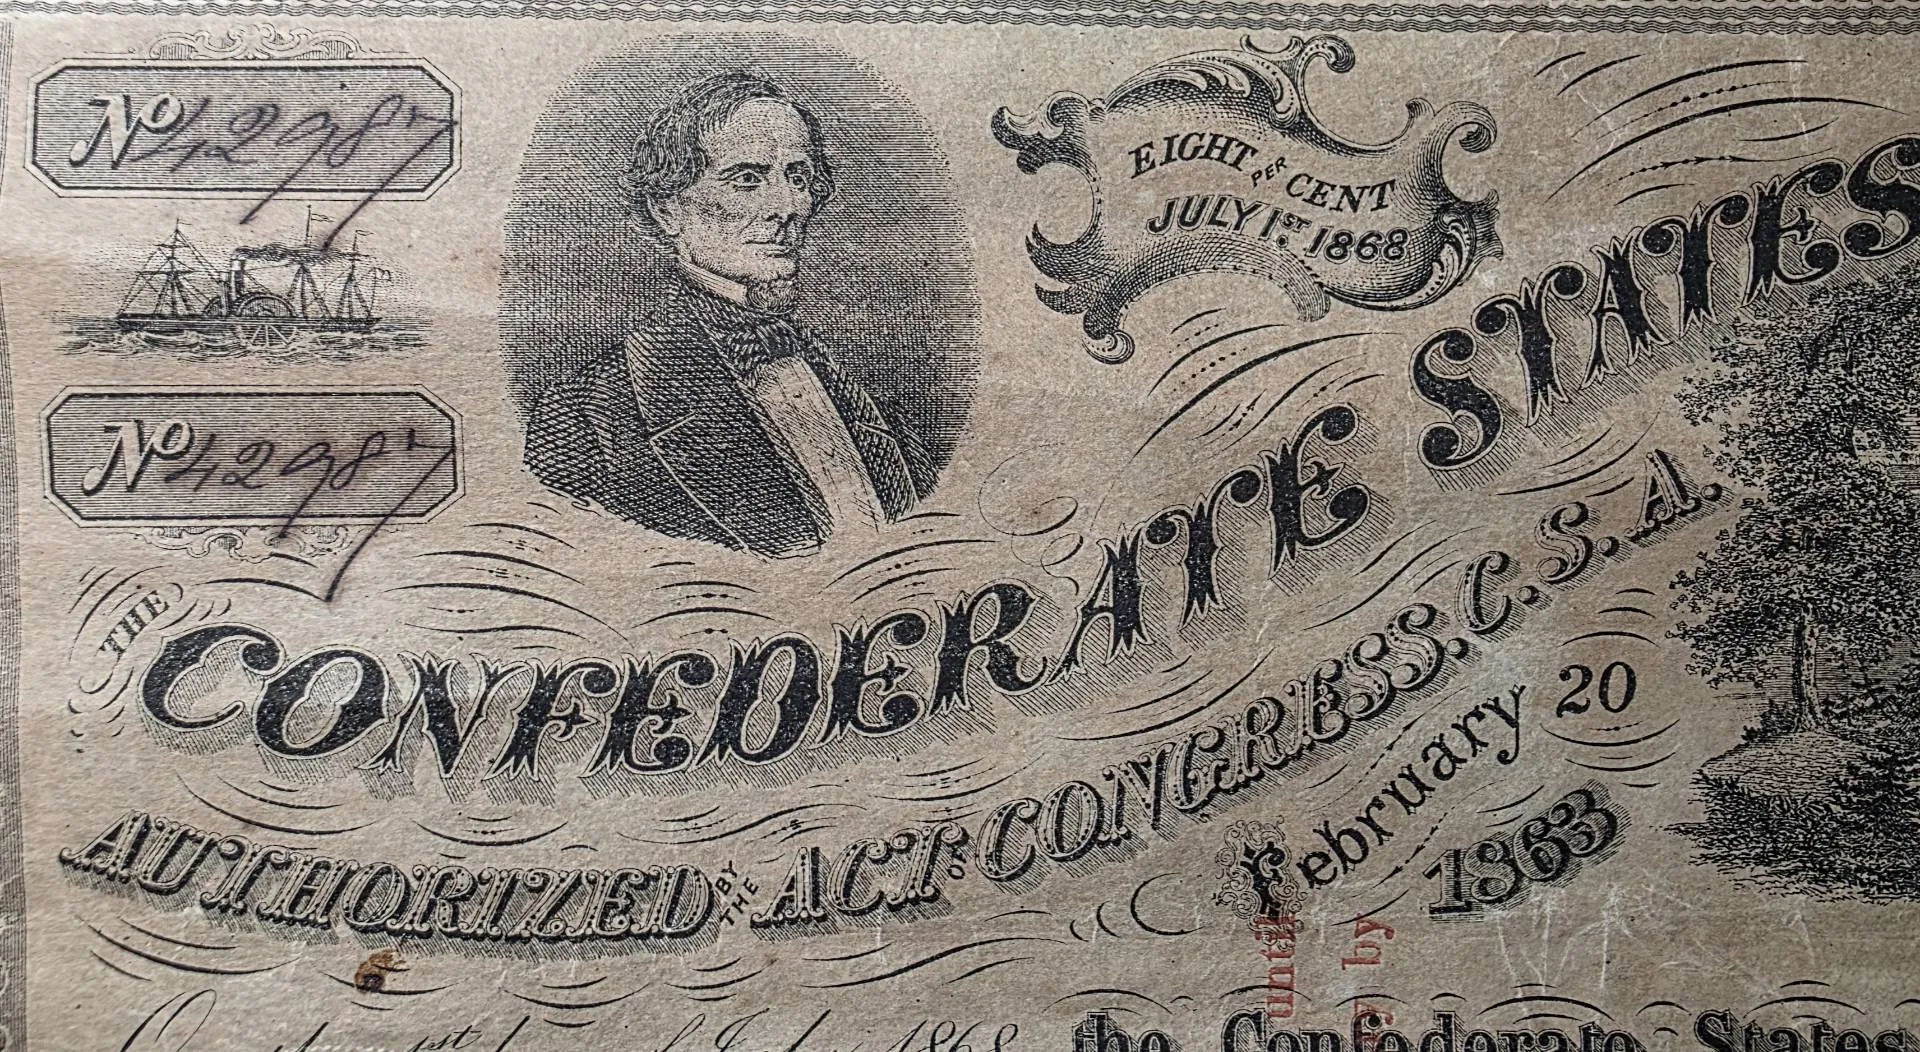 No 42987
No 42987
EIGHT PER CENT
JULY 1ST 1868
THE
CONFEDERATE STATES
AUTHORIZED BY THE ACT OF CONGRESS. C. S. A.
February 20
1863
until
by
July 1868 the Confederate States